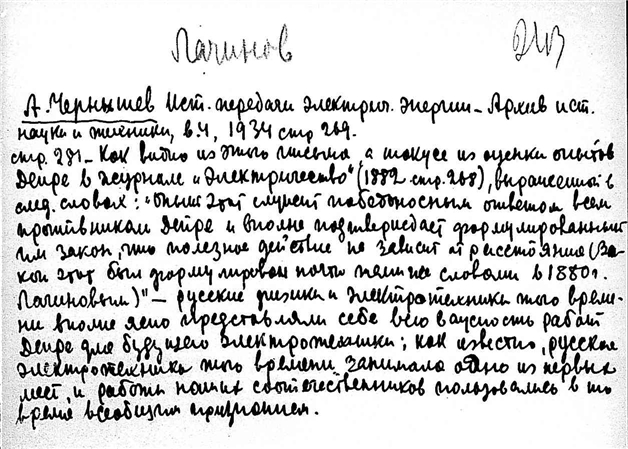 Лачинов
А. Чернышев Ист. передачи электрич. энергии – Архив ист.
науки и техники, в. 4, 1934 стр 269.
стр. 281 – Как видно из этого письма, а также из оценки опытов
Депре в журнале "Электричество" (1882 стр. 268), выраженной в
след. словах: "опыт этот служит победоносным ответом всем
противникам Депре и вполне подтверждает формулированный
им закон, что полезное действие не зависит от расстояния (За-
кон этот был формулирован почти теми же словами в 1880 г.
Лачиновым)" – русские физики и электротехники того време-
ни вполне ясно представляли себе всю важность работ
Депре для будущего электротехники; как известно, русская
электротехника того времени занимала одно из первых
мест, и работы наших соотечественников пользовались в то
время всеобщим признанием.